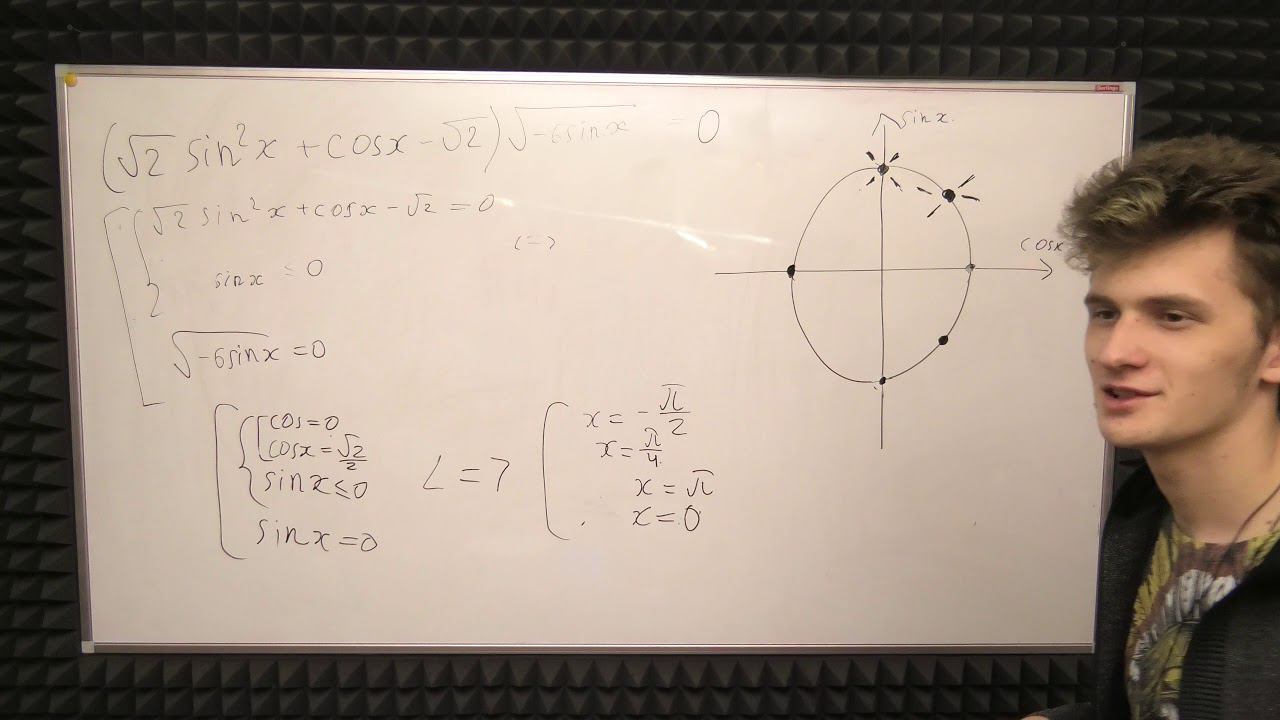 (√2 sin²x + cosx − √2) √−6sinx = 0
√2 sin²x + cosx − √2 = 0
sinx ≤ 0
<=>
√−6sinx = 0
cos = 0
cosx = √2/2
sinx ≤ 0
sinx = 0
<=>
x = −π/2
x = π/4
x = π
x = 0
sin x.
cosx